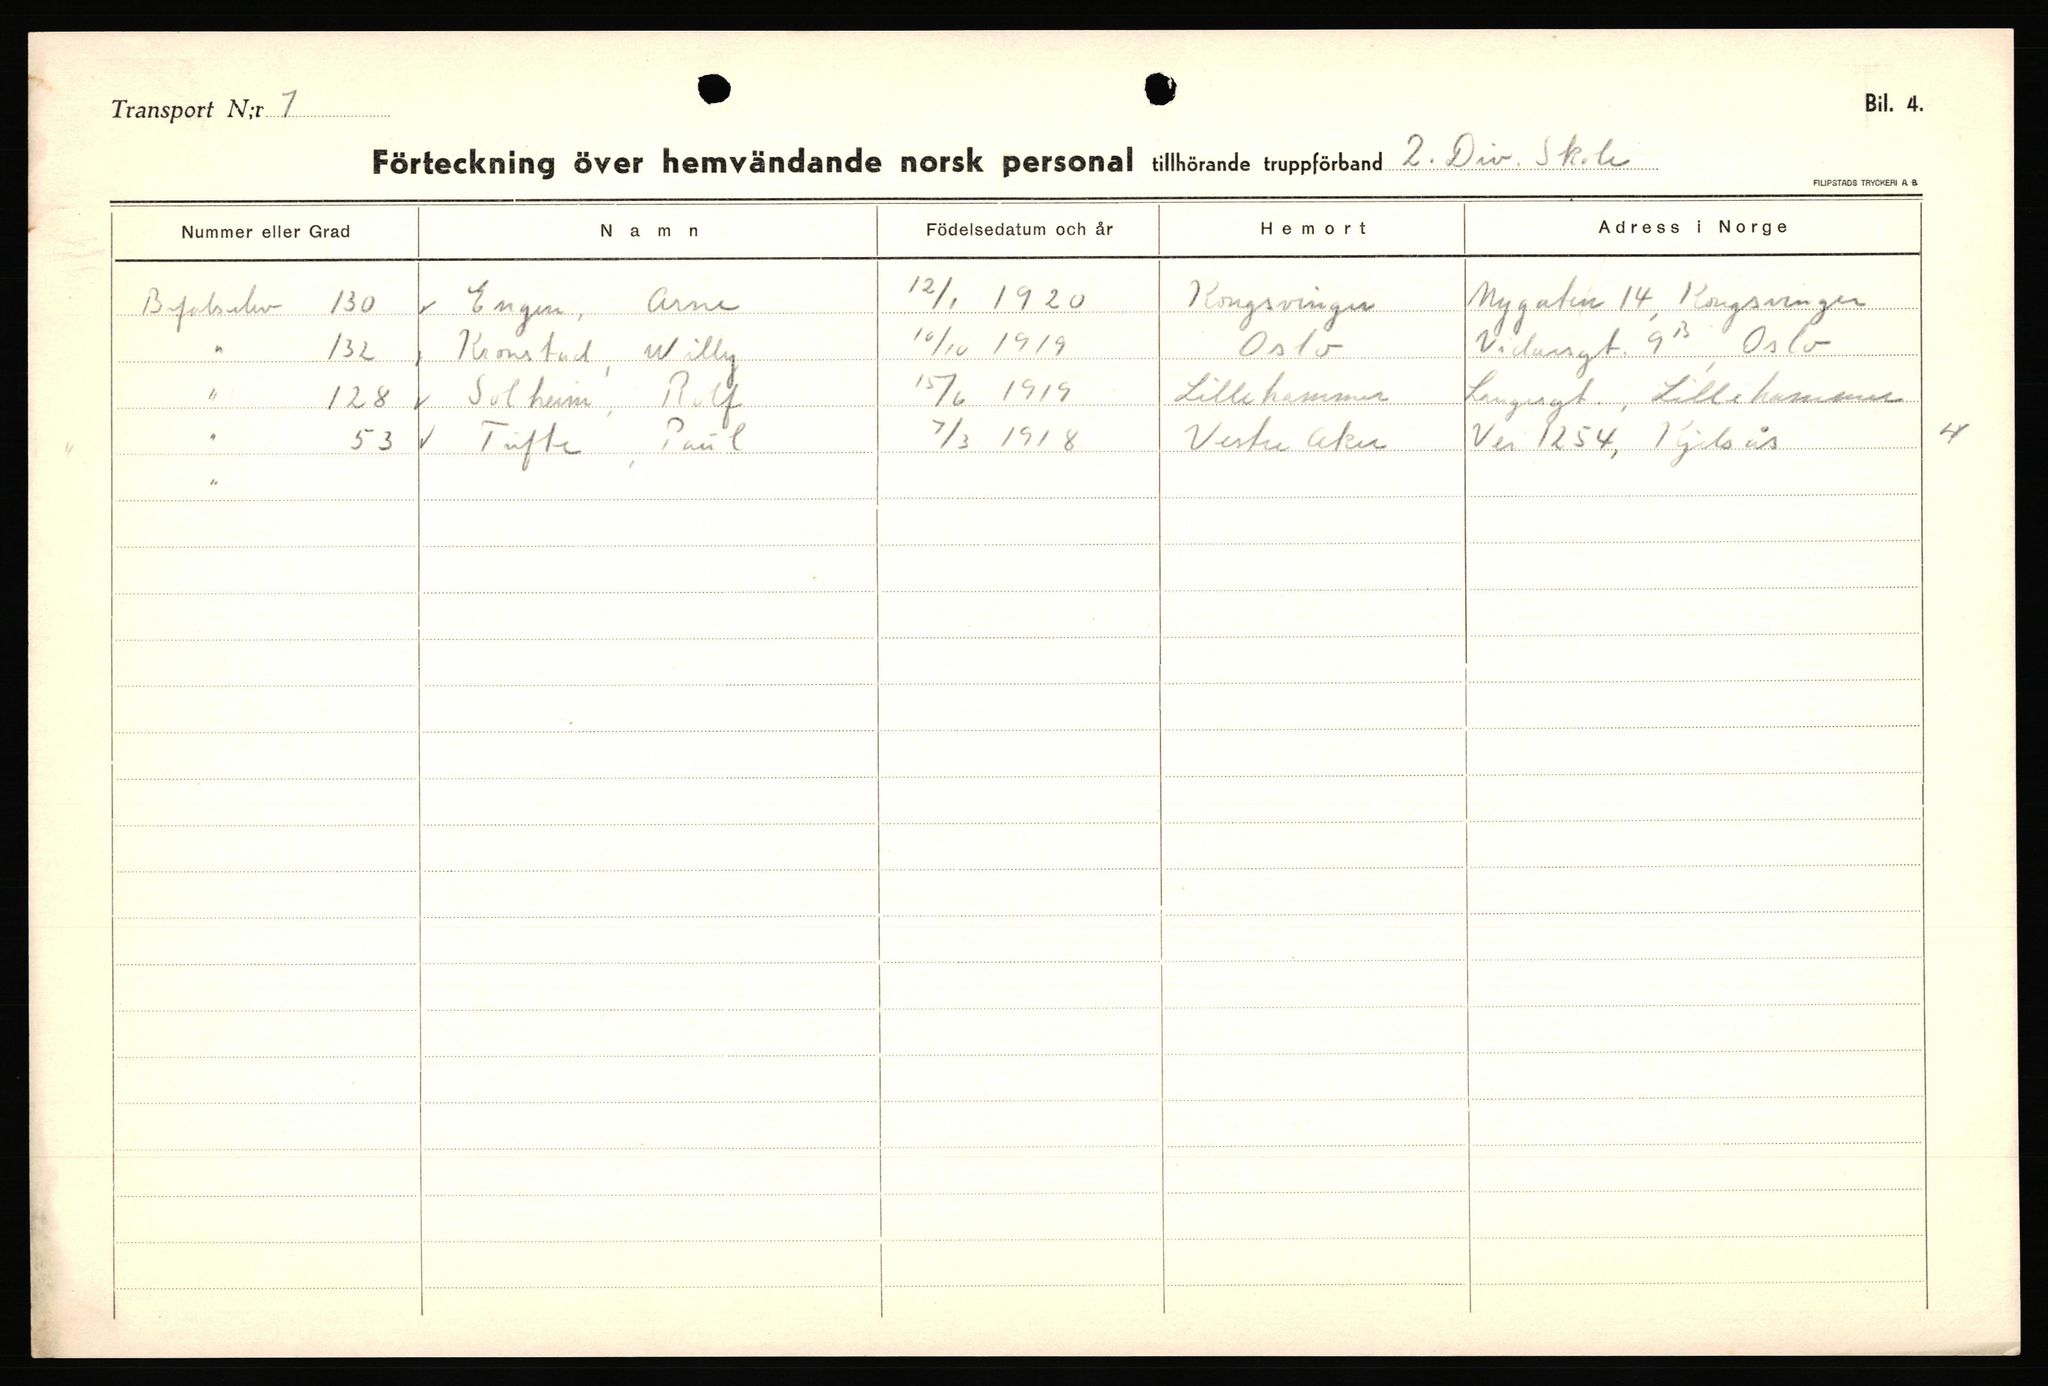 Transport N;r 1
Bil. 4.
Förteckning över hemvändande norsk personal tillhörande truppförband 2. Div. Skole
FILIPSTADS TRYCKERI A B
Nummer eller Grad Namn Födelsedatum och år Hemort Adress i Norge
Befalselev 130 ✓ Engen, Arne 12/1 1920 Kongsvinger Nygaten 14, Kongsvinger
" 132 Kronstad, Willy 10/10 1919 Oslo Vidarsgt. 9B, Oslo
" 128 ✓ Solheim, Rolf 15/6 1919 Lillehammer Langesgt., Lillehammer
" 53 ✓ Tufte, Paul 7/3 1918 Vestre Aker Vei 1254, Kjelsås 4
"